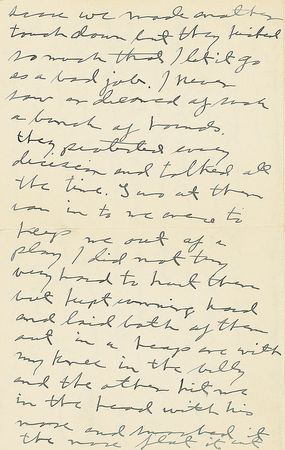 score we made another
touch down but they kicked
so much that I let it go
as a bad job. I never
saw or dreamed of such
a bunch of hounds.
they protested every
decision and talked all
the time. Two at them
ran in to me once to
keep me out of a
play I did not try
very hard to hurt them
but kept running hard
and laid both of them
out in a heap one with
my knee in the belly
and the other hit me
in the head with his
nose and smashed it
the nose flat it cut